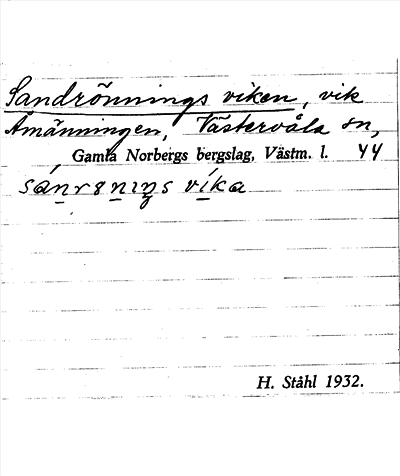 Sandrönnings viken, vik
Åmänningen, Västervåla sn,
Gamla Norbergs bergslag, Västm. l. 44
sánrɞnıŋs víka
H. Ståhl 1932.